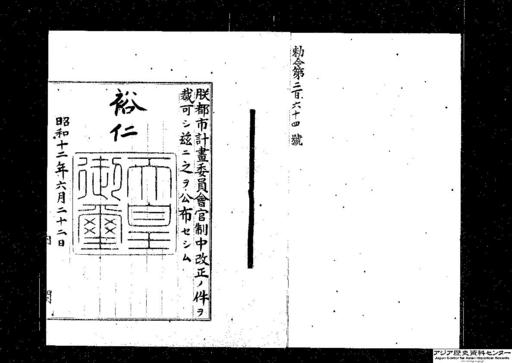 勅令第二百六十四號
朕都市計畫委員會官制中改正ノ件ヲ
裁可シ茲ニ之ヲ公布セシム
裕仁
天皇
御璽
昭和十二年六月二十二日
アジア歴史資料センター
Japan Center for Asian Historical Records